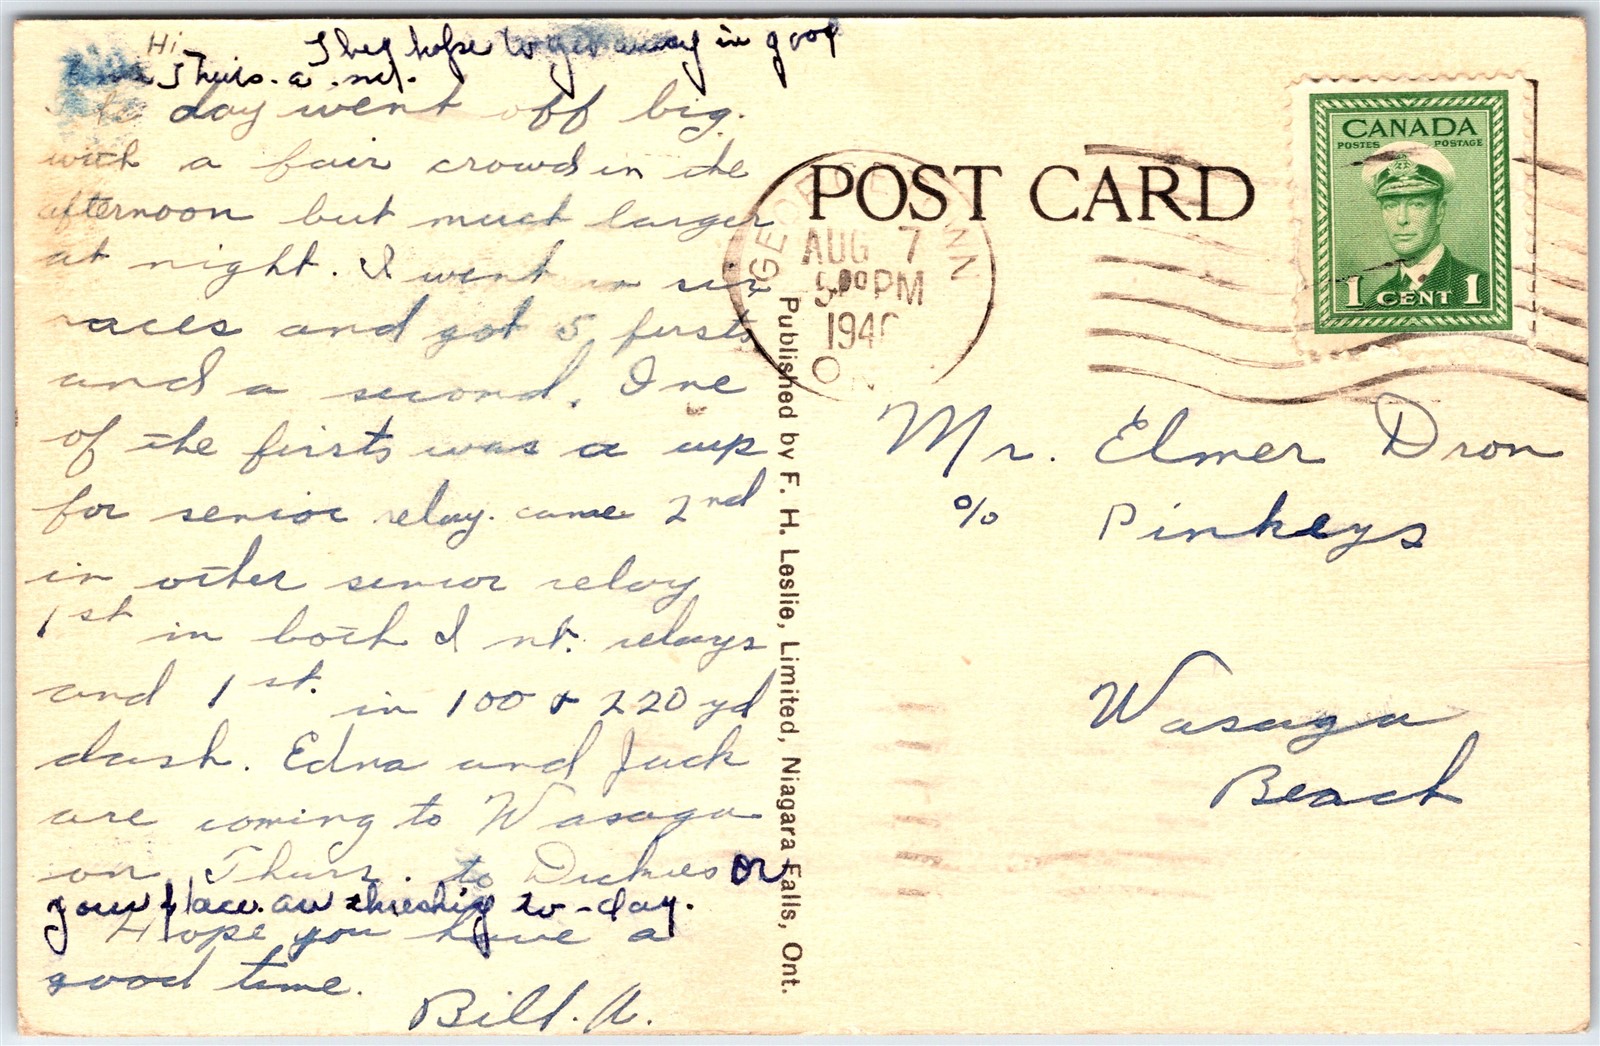 Hi
They hope to get away in good
Thurs. a.m.
day went off big.
with a fair crowd in the
afternoon but much larger
at night. I went in six
races and got 5 firsts
and a second. One
of the firsts was a cup
for senior relay. came 2nd
in other senior relay
1st in both Int. relays
and 1st. in 100 & 220 yd
dash. Edna and Jack
are coming to Wasaga
on Thurs. to Dickies or
your place. are threshing to-day.
Hope you have a
good time.
Bill. A.
Published by F. H. Leslie, Limited, Niagara Falls, Ont.
POST CARD
AUG 7
5 00 PM
194
ON
CANADA
POSTES POSTAGE
1 CENT 1
Mr. Elmer Dron
c/o Pinkeys
Wasaga
Beach